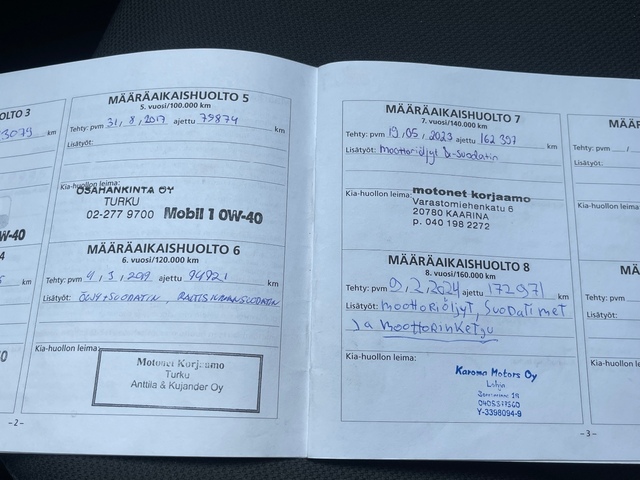 OLTO 3
3079
km
W-40
4
km
MÄÄRÄAIKAISHUOLTO 5
5. vuosi/100.000 km
Tehty: pvm 31, 8, 2017 ajettu 79874 km
Lisätyöt:
Kia-huollon leima:
OSAHANKINTA OY
TURKU
02-277 9700 Mobil 1 0W-40
MÄÄRÄAIKAISHUOLTO 6
6. vuosi/120.000 km
Tehty: pvm 4, 3, 2019 ajettu 94921 km
Lisätyöt: ÖLJY+SUODATIN, RAITISILMANSUODATIN
Kia-huollon leima:
Motonet Korjaamo
Turku
Anttila & Kujander Oy
-2-
MÄÄRÄAIKAISHUOLTO 7
7. vuosi/140.000 km
Tehty: pvm 19,05, 2023 ajettu 162 397 km
Lisätyöt: moottoriöljyt & suodatin
Kia-huollon leima:
motonet korjaamo
Varastomiehenkatu 6
20780 KAARINA
p. 040 198 2272
MÄÄRÄAIKAISHUOLTO 8
8. vuosi/160.000 km
Tehty: pvm 9, 2, 2024 ajettu 172971 km
Lisätyöt: moottoriöljyt, suodatimet
ja moottorinketju
Kia-huollon leima:
Karoma Motors Oy
Lohja
Y-3398094-9
MÄÄR
Tehty: pvm /
Lisätyöt:
Kia-huollon
MÄÄ
Tehty: pvm
Lisätyöt:
Kia-huollon
-3-